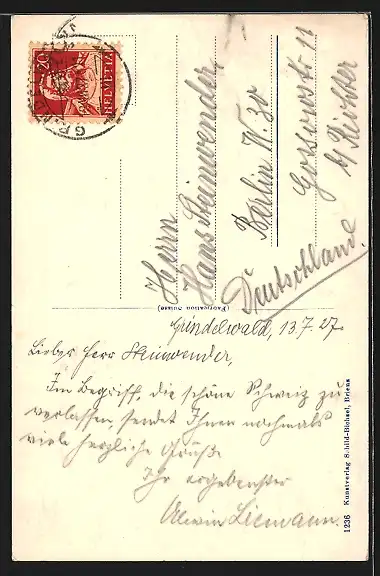 20
HELVETIA
Herrn
Hans Steinwender
Berlin W. 30
Gossowstr. 11
b/ Richter
Deutschland.
(Fabrication Suisse)
Grindelwald, 13.7.27.
Lieber Herr Steinwender,
Im Begriff, die schöne Schweiz zu
verlassen, sendet Ihnen nochmals
viele herzliche Grüße
Ihr ergebenster
Alwin Liemann.
1236 Kunstverlag Schild-Bichsel, Brienz